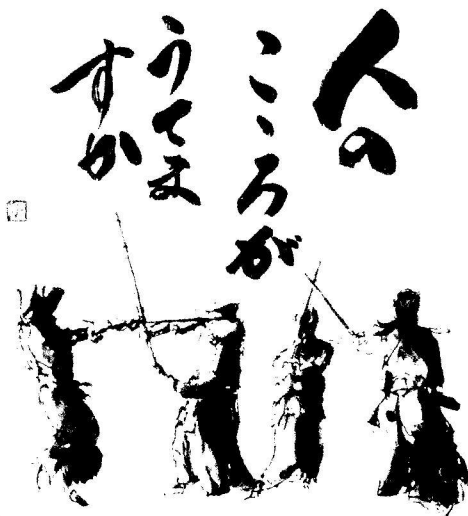 人の
こゝろが
うてま
すか